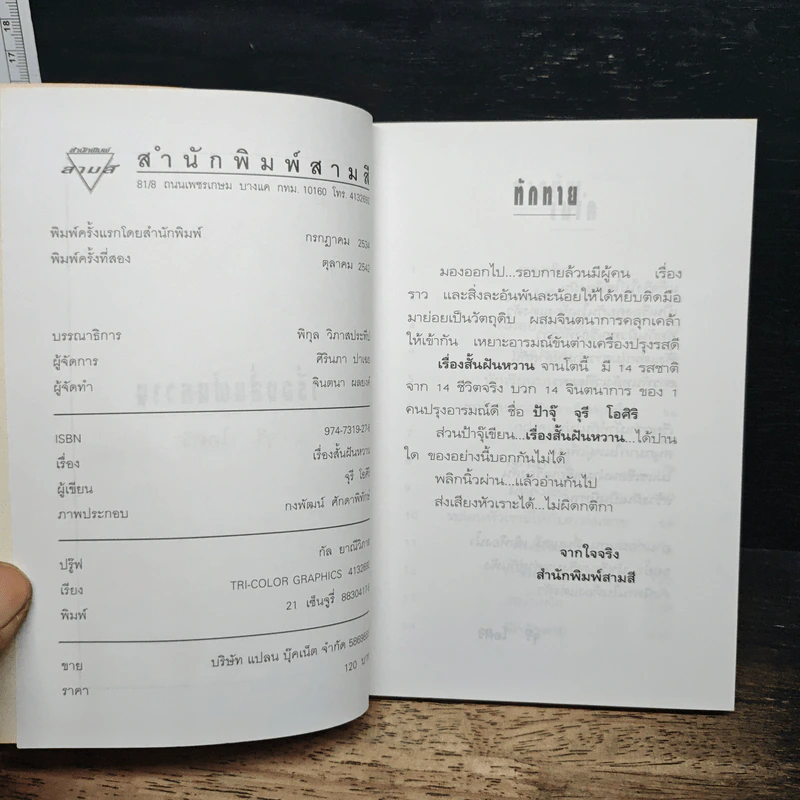 18
17
สำนักพิมพ์
สามสี
สำนักพิมพ์สามสี
81/8 ถนนเพชรเกษม บางแค กทม. 10160 โทร.
พิมพ์ครั้งแรกโดยสำนักพิมพ์ กรกฎาคม 2534
พิมพ์ครั้งที่สอง ตุลาคม 2542
บรรณาธิการ พิกุล วิภาสประทีป
ผู้จัดการ ศิรินภา
ผู้จัดทำ จินตนา
ISBN 974-7319-27-6
เรื่อง เรื่องสั้นฝันหวาน
ผู้เขียน จุรี โอศิริ
ภาพประกอบ กงพัฒน์ ศักดาพิทักษ์
ปรู๊ฟ กัล
เรียง TRI-COLOR GRAPHICS
พิมพ์ 21 เซ็นจูรี่ 8830417-6
ขาย บริษัท แปลน บุ๊คเน็ต จำกัด
ราคา 120 บาท
ทักทาย
มองออกไป...รอบกายล้วนมีผู้คน เรื่อง
ราว และสิ่งละอันพันละน้อยให้ได้หยิบติดมือ
มาย่อยเป็นวัตถุดิบ ผสมจินตนาการคลุกเคล้า
ให้เข้ากัน เหยาะอารมณ์ขันต่างเครื่องปรุงรสดี
เรื่องสั้นฝันหวาน จานโตนี้ มี 14 รสชาติ
จาก 14 ชีวิตจริง บวก 14 จินตนาการ ของ 1
คนปรุงอารมณ์ดี ชื่อ ป้าจุ๊ จุรี โอศิริ
ส่วนป้าจุ๊เขียน...เรื่องสั้นฝันหวาน...ได้ปาน
ใด ของอย่างนี้บอกกันไม่ได้
พลิกนิ้วผ่าน...แล้วอ่านกันไป
ส่งเสียงหัวเราะได้...ไม่ผิดกติกา
จากใจจริง
สำนักพิมพ์สามสี